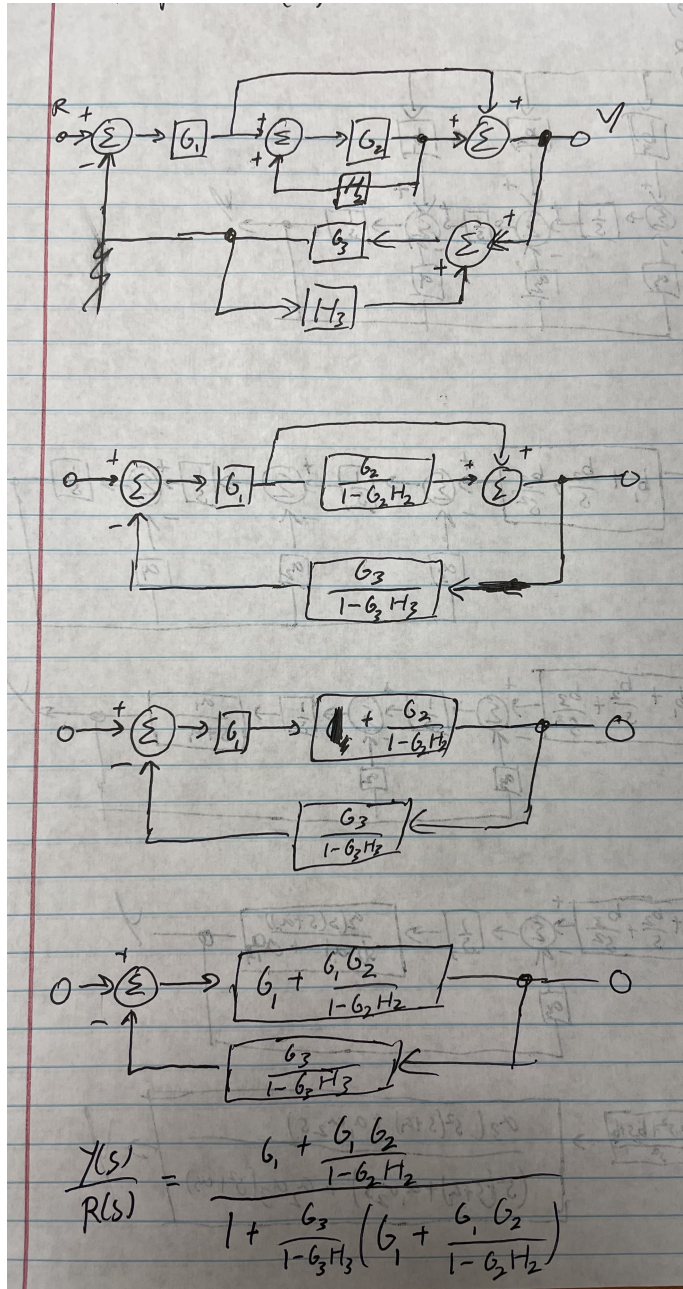 R + Σ G₁ + Σ G₂ + Σ + Y
- + H₂
G₃ + Σ +
H₃
+ Σ G₁ G₂/(1-G₂H₂) + Σ +
-
G₃/(1-G₃H₃)
+ Σ G₁ + G₂/(1-G₂H₂)
-
G₃/(1-G₃H₃)
+ Σ G₁ + G₁G₂/(1-G₂H₂)
-
G₃/(1-G₃H₃)
Y(s)/R(s) = (G₁ + G₁G₂/(1-G₂H₂))/(1 + G₃/(1-G₃H₃) (G₁ + G₁G₂/(1-G₂H₂)))